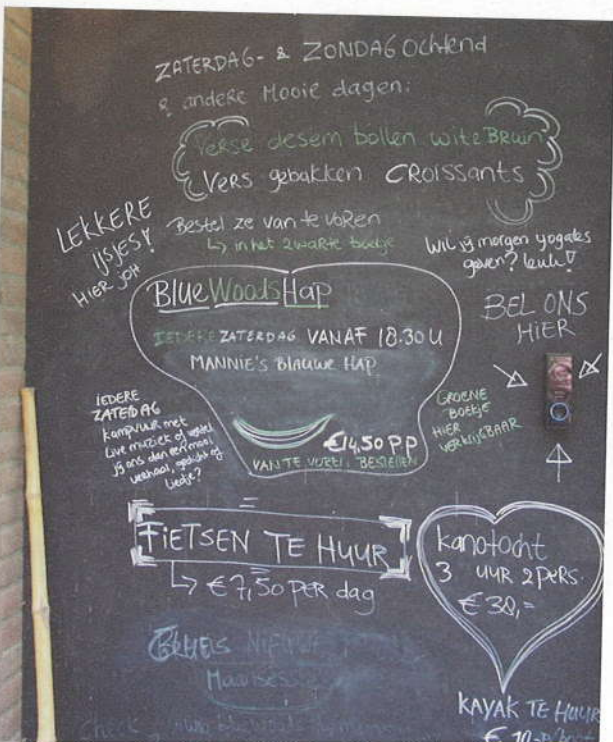 ZATERDAG- & ZONDAGOCHTEND
& andere Mooie dagen:
Verse desem bollen wit&Bruin
Vers gebakken CROISSANTS
LEKKERE
IJSJES!
HIER JOH
Bestel ze van te voren
in het zwarte boekje
Wil jij morgen yogales
geven? leuk!
BEL ONS
HIER
BlueWoodsHap
IEDERE ZATERDAG VANAF 18.30 U
MANNIE'S Blauwe HAP
€14,50 PP
VAN TE VOREN BESTELLEN
GROENE
BOEKJE
HIER
VERKRIJGBAAR
IEDERE
ZATERDAG
kampvuur met
Live muziek of vertel
jij ons dan een mooi
verhaal, gedicht of
liedje?
FIETSEN TE HUUR
€7,50 PER dag
kanotocht
3 UUR 2 pers.
€ 38,=
NIEUW
check
KAYAK TE HUUR
€ 10